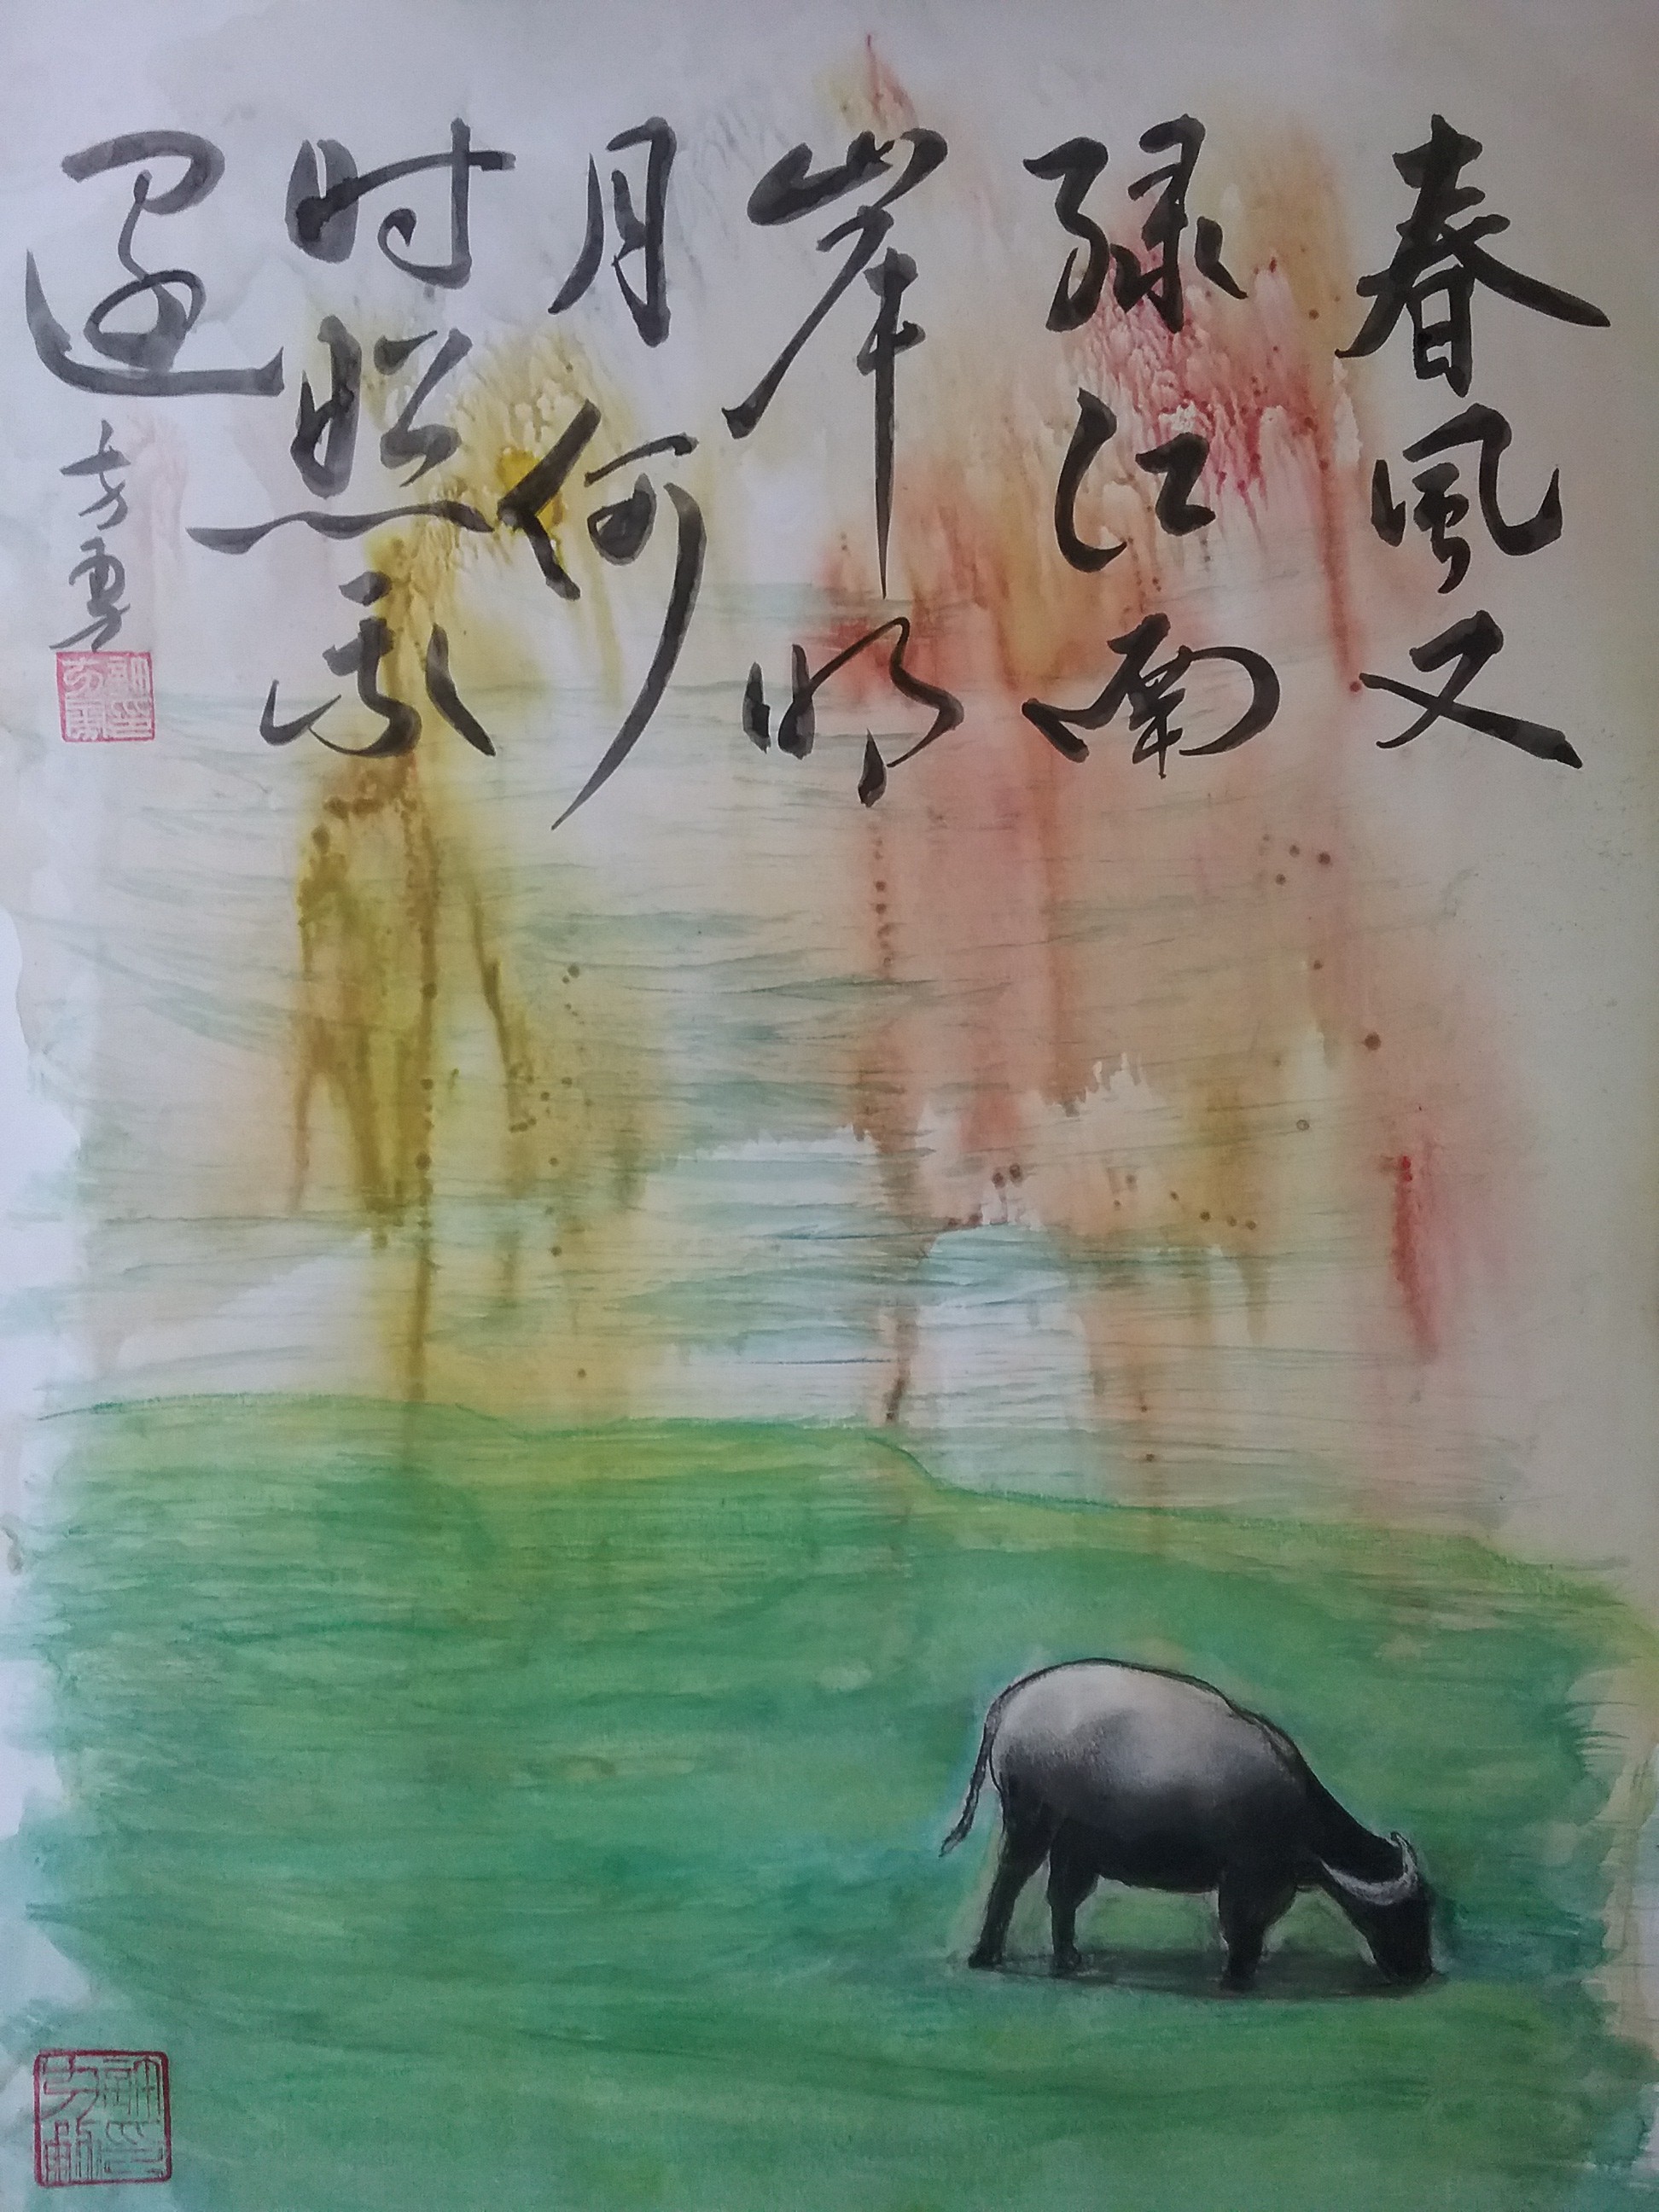 春風又
绿江南
岸明
月何
时照我
還
方勇